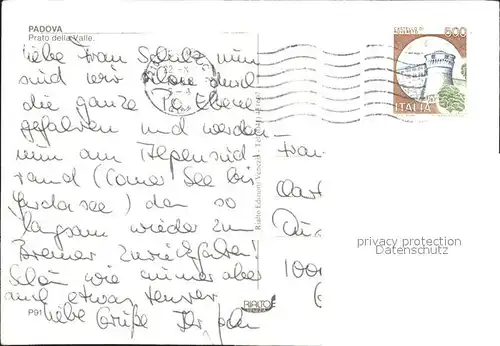 PADOVA
Prato della Valle.
liebe Frau Schulz, nun
sind wir schon durch
die ganze Po Ebene
gefahren und werden
nun am Alpensüd
rand (Comer See bis
Gardasee) dann so
langsam wieder zum
Brenner zurückfahren!
Schön wie immer aber
auch etwas teurer
liebe Grüße Ihr
P91
RIALTO
VENEZIA
Rialto Edizioni Venezia
CASTELLO DI
ROVERETO
500
ITALIA
Frau
100
privacy protection
Datenschutz